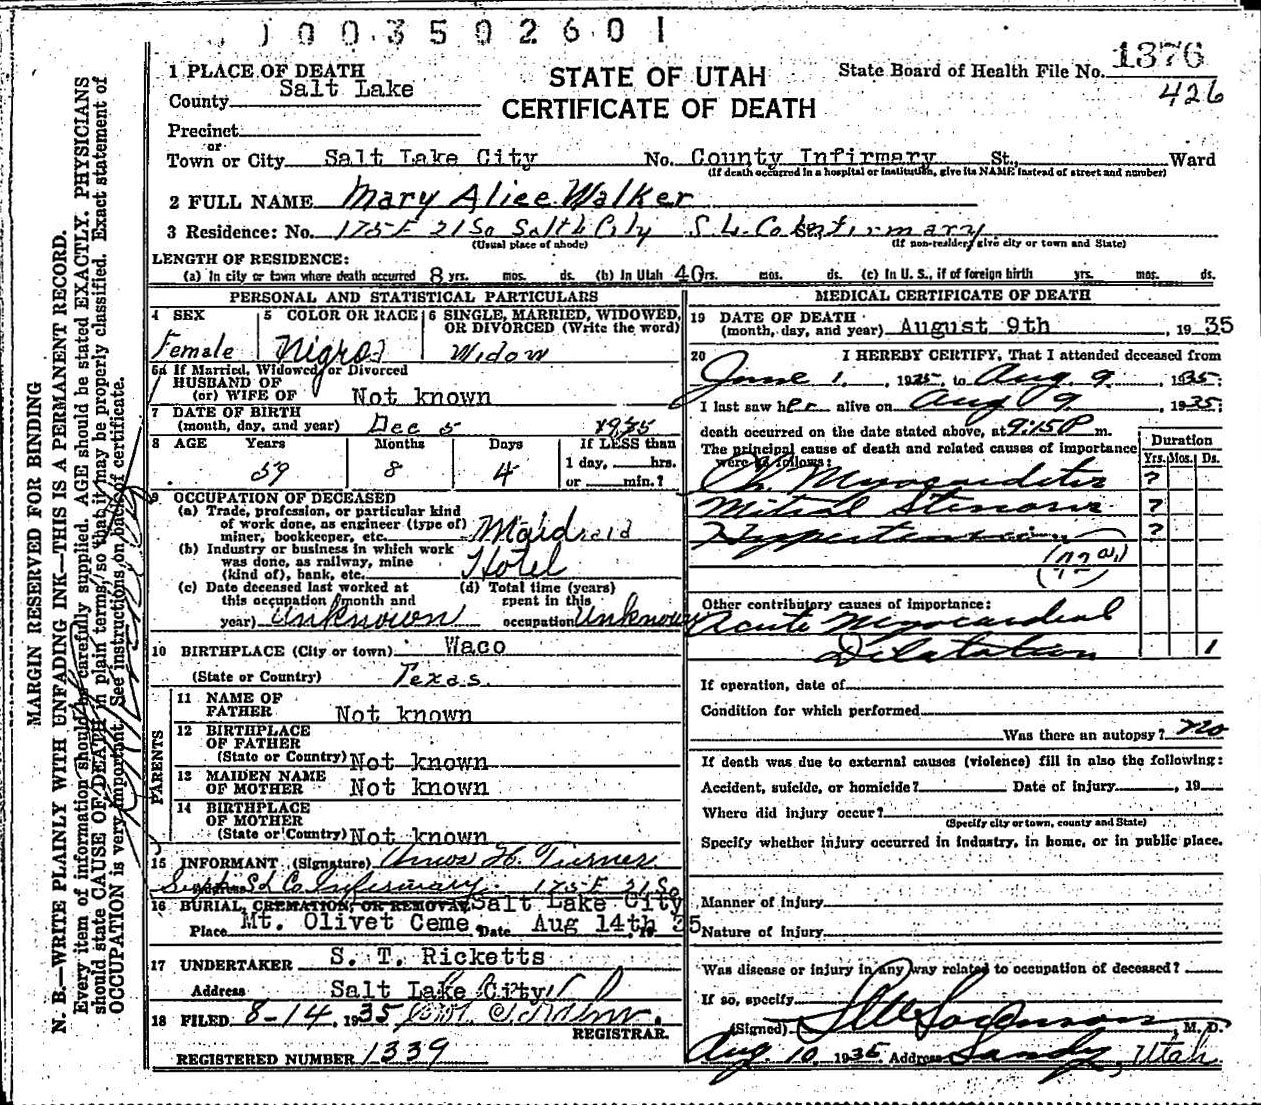 1003502601
1 PLACE OF DEATH
STATE OF UTAH
CERTIFICATE OF DEATH
State Board of Health File No. 1376
426
County Salt Lake
Precinct
or
Town or City Salt Lake City No. County Infirmary St., Ward
(If death occurred in a hospital or institution, give its NAME instead of street and number)
2 FULL NAME Mary Alice Walker
3 Residence: No. 175 E 21 So Salt L City S. L. Co Infirmary
(Usual place of abode) (If non-resident give city or town and State)
LENGTH OF RESIDENCE:
(a) In city or town where death occurred 8 yrs. mos. ds. (b) In Utah 40 rs. mos. ds. (c) In U. S., if of foreign birth yrs. mos. ds.
PERSONAL AND STATISTICAL PARTICULARS
4 SEX
Female
5 COLOR OR RACE
6 SINGLE, MARRIED, WIDOWED, OR DIVORCED (Write the word)
Widow
6a If Married, Widowed, or Divorced
HUSBAND OF
(or) WIFE OF Not known
7 DATE OF BIRTH
(month, day, and year) Dec 5
8 AGE Years Months Days If LESS than
59 8 4 1 day, hrs.
or min.?
9 OCCUPATION OF DECEASED
(a) Trade, profession, or particular kind
of work done, as engineer (type of)
miner, bookkeeper, etc. Maid
(b) Industry or business in which work
was done, as railway, mine
(kind of), bank, etc. Hotel
(c) Date deceased last worked at
this occupation (month and
year) Unknown
(d) Total time (years)
spent in this
occupation Unknown
10 BIRTHPLACE (City or town) Waco
(State or Country) Texas.
PARENTS
11 NAME OF
FATHER Not known
12 BIRTHPLACE
OF FATHER
(State or Country) Not known
13 MAIDEN NAME
OF MOTHER Not known
14 BIRTHPLACE
OF MOTHER
(State or Country) Not known
15 INFORMANT (Signature) Amos H. Turner
Address S L Co Infirmary 175 E 21 So
16 BURIAL, CREMATION, OR REMOVAL Salt Lake City
Place Mt. Olivet Ceme Date Aug 14th, 19 35
17 UNDERTAKER S. T. Ricketts
Address Salt Lake City
18 FILED 8-14, 1935
REGISTRAR.
REGISTERED NUMBER 1339
MEDICAL CERTIFICATE OF DEATH
19 DATE OF DEATH
(month, day, and year) August 9th, 1935
20 I HEREBY CERTIFY, That I attended deceased from
June 1, 1935, to Aug. 9, 1935;
I last saw her alive on Aug 9, 1935;
death occurred on the date stated above, at 9:15 P m.
The principal cause of death and related causes of importance
were as follows:
Duration
Yrs. Mos. Ds.
Ch. Myocarditis ?
Mitral Stenosis ?
Hypertension ?
Other contributory causes of importance:
Acute Myocardial
Dilatation 1
If operation, date of
Condition for which performed
Was there an autopsy? no
If death was due to external causes (violence) fill in also the following:
Accident, suicide, or homicide? Date of injury, 19
Where did injury occur?
(Specify city or town, county and State)
Specify whether injury occurred in industry, in home, or in public place.
Manner of injury
Nature of injury
Was disease or injury in any way related to occupation of deceased?
If so, specify
(Signed) M. D.
Aug. 10, 1935 Address Sandy, Utah
MARGIN RESERVED FOR BINDING
N. B.—WRITE PLAINLY WITH UNFADING INK—THIS IS A PERMANENT RECORD.
Every item of information should be carefully supplied. AGE should be stated EXACTLY. PHYSICIANS
should state CAUSE OF DEATH in plain terms, so that it may be properly classified. Exact statement of
OCCUPATION is very important. See instructions on back of certificate.